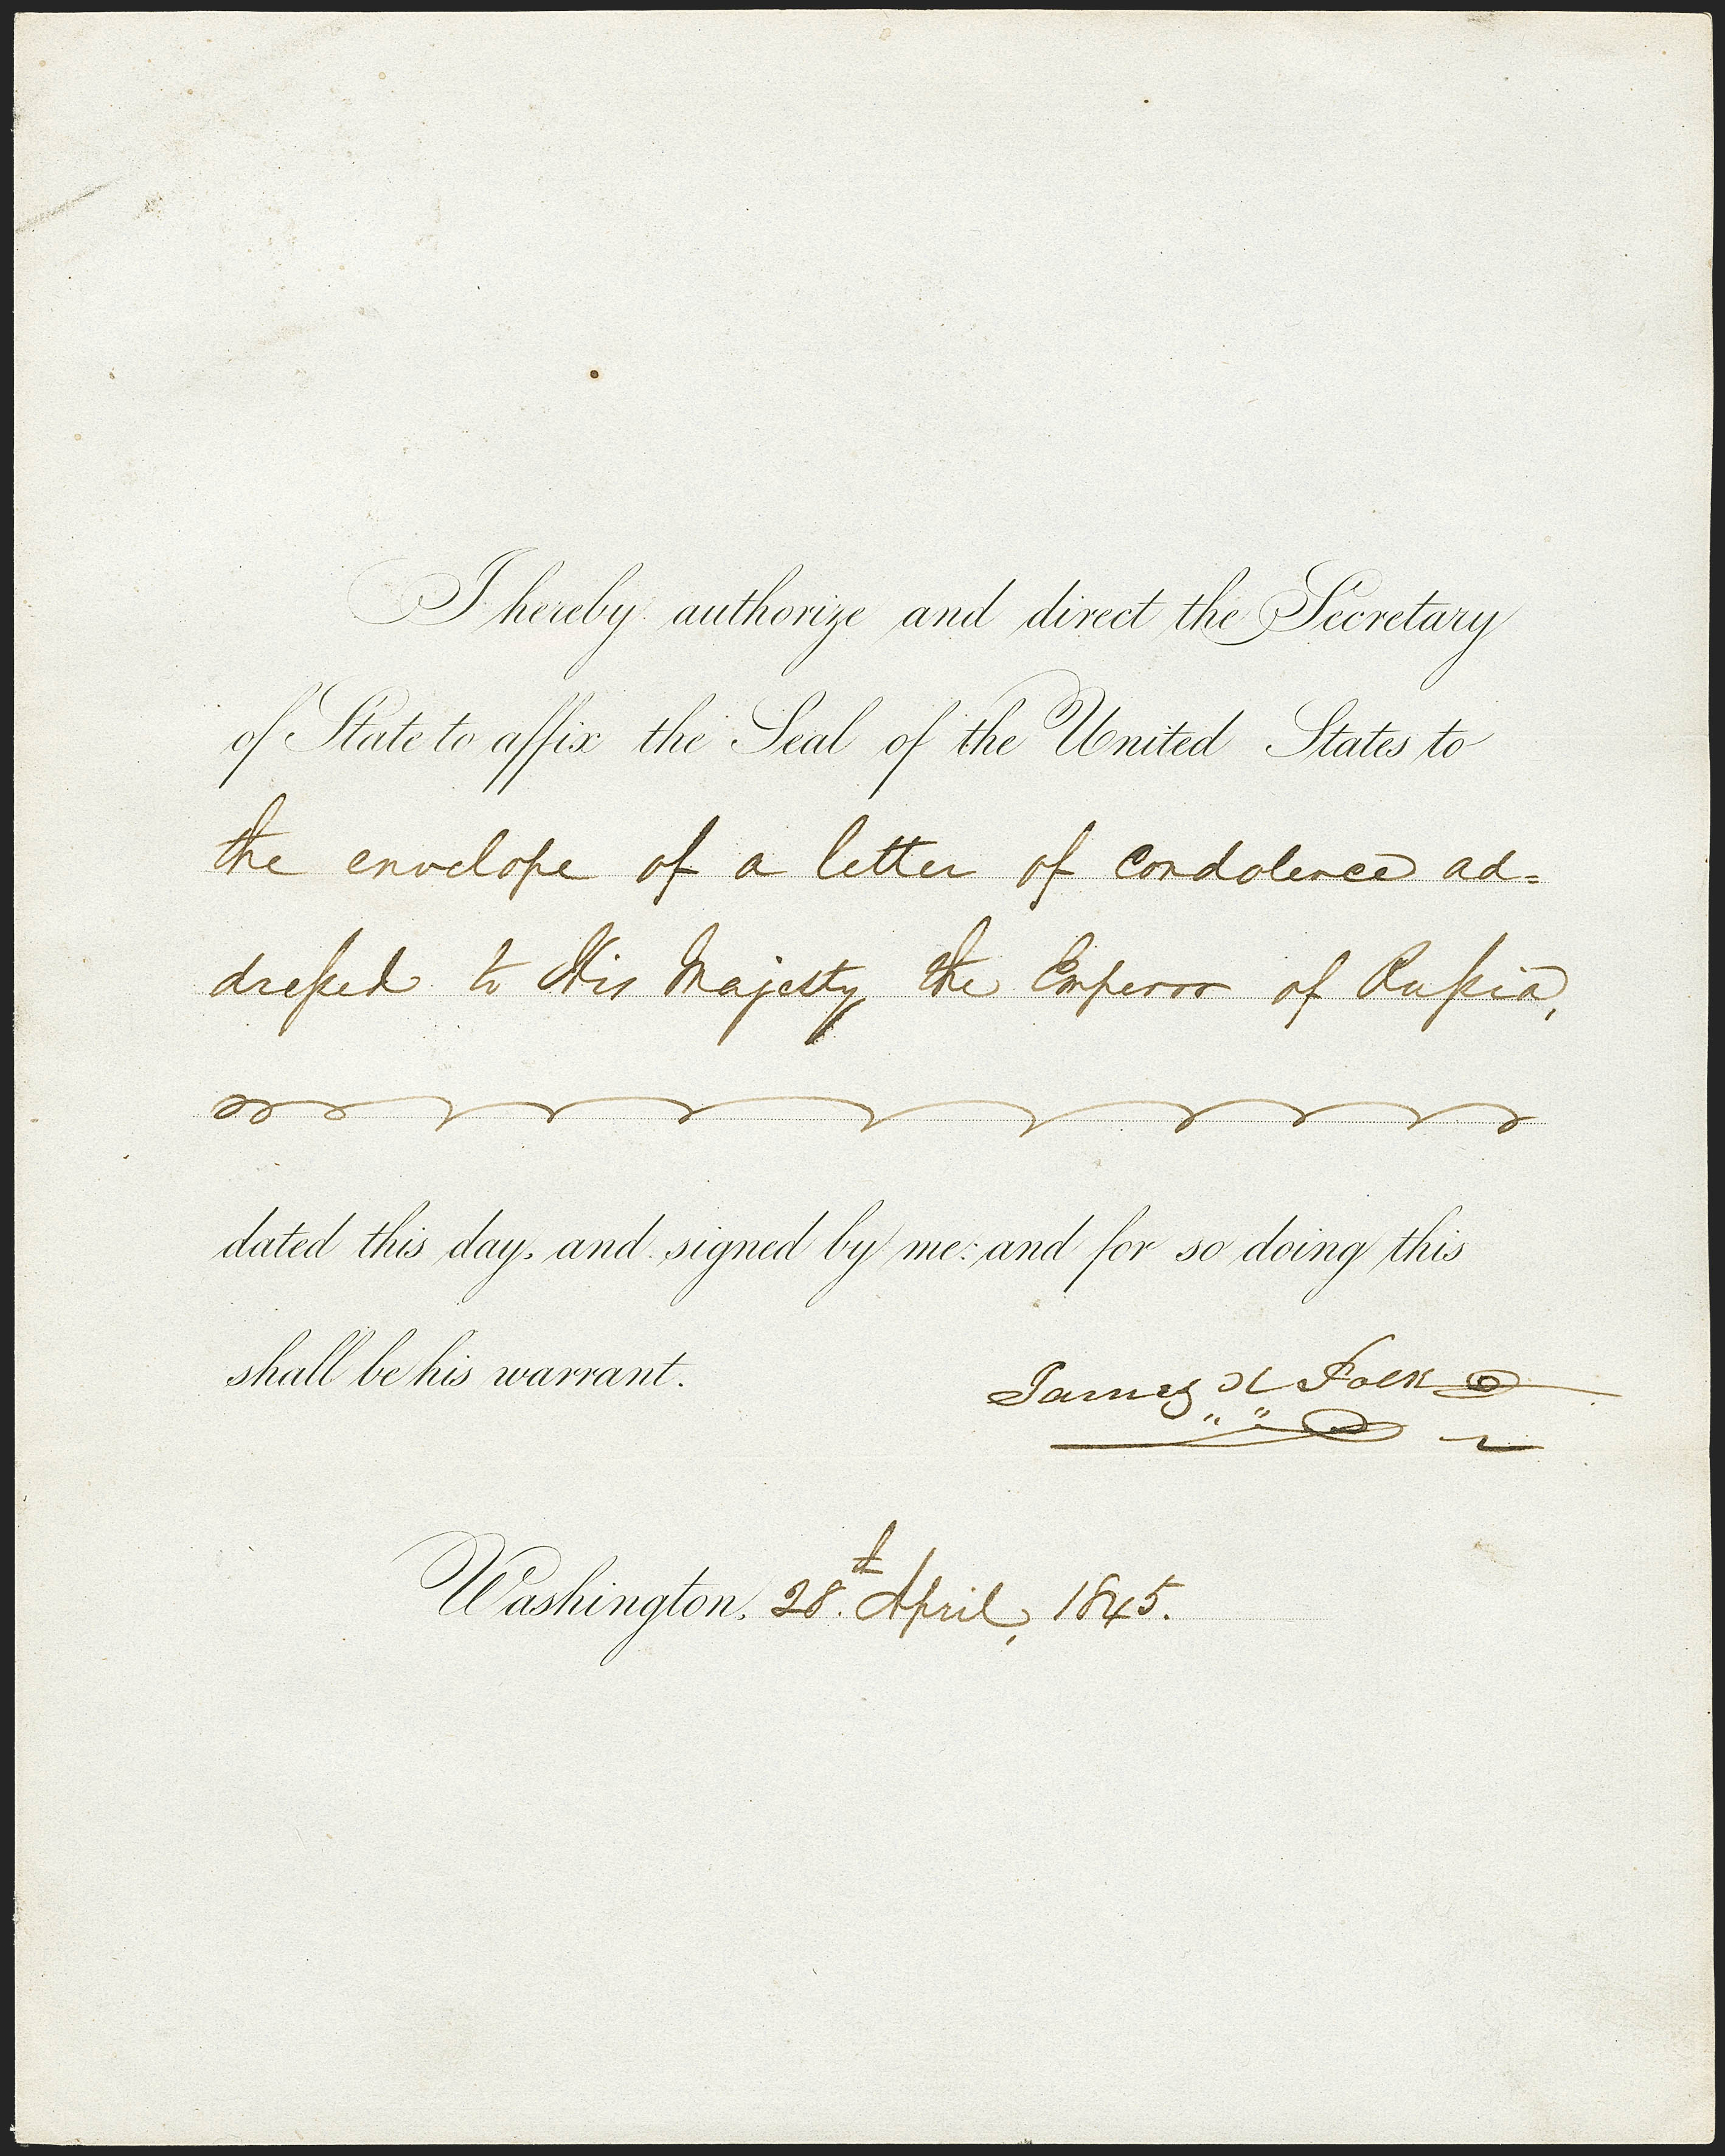 I hereby authorize and direct the Secretary
of State to affix the Seal of the United States to
the envelope of a letter of Condolence ad=
dreſsed to His Majesty the Emperor of Ruſsia,
dated this day, and signed by me: and for so doing this
shall be his warrant.
James K Polk
Washington, 28.th April, 1845.